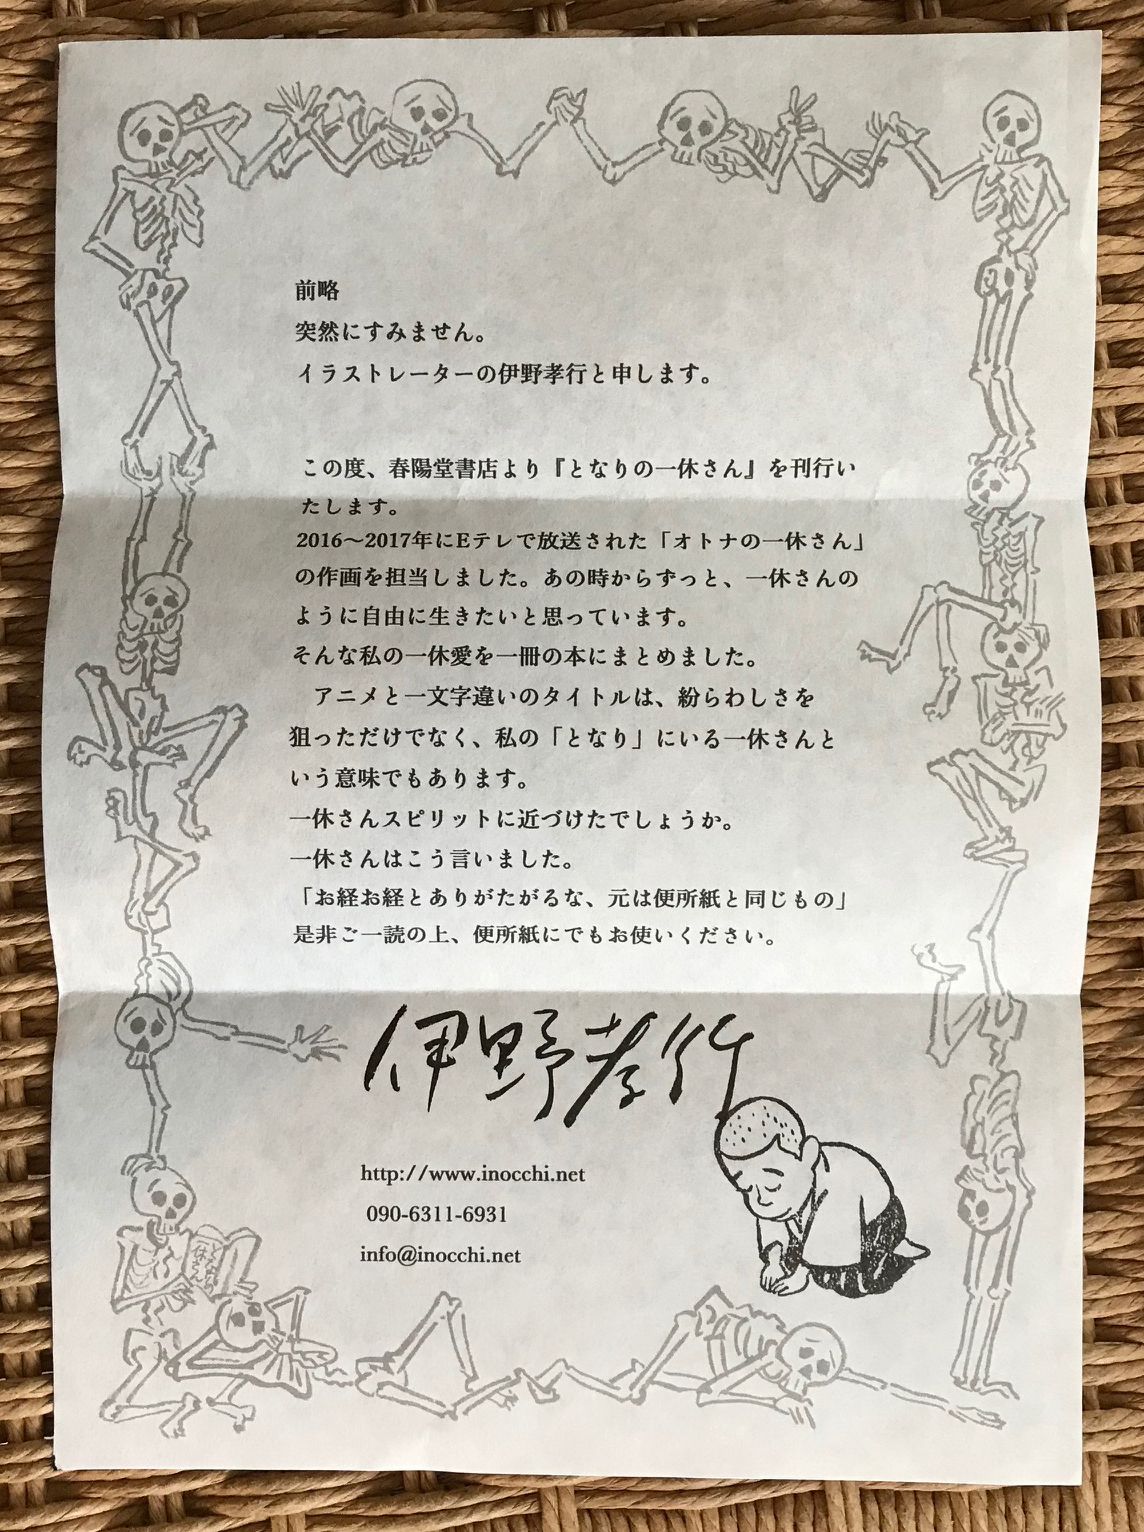 前略
突然にすみません。
イラストレーターの伊野孝行と申します。
この度、春陽堂書店より『となりの一休さん』を刊行い
たします。
2016〜2017年にEテレで放送された「オトナの一休さん」
の作画を担当しました。あの時からずっと、一休さんの
ように自由に生きたいと思っています。
そんな私の一休愛を一冊の本にまとめました。
アニメと一文字違いのタイトルは、紛らわしさを
狙っただけでなく、私の「となり」にいる一休さんと
いう意味でもあります。
一休さんスピリットに近づけたでしょうか。
一休さんはこう言いました。
「お経お経とありがたがるな、元は便所紙と同じもの」
是非ご一読の上、便所紙にでもお使いください。
伊野孝行
http://www.inocchi.net
090-6311-6931
info@inocchi.net